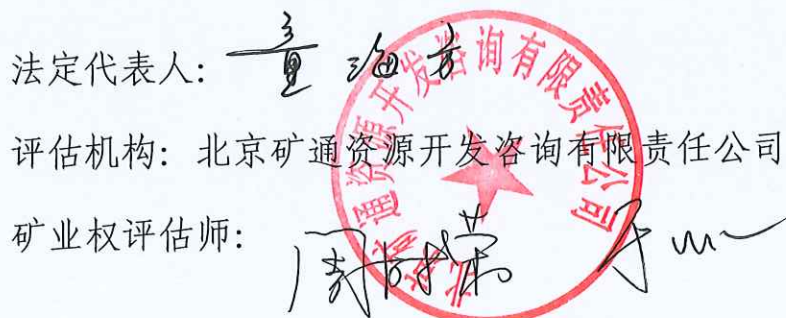 法定代表人:
评估机构:北京矿通资源开发咨询有限责任公司
矿业权评估师:
北京矿通资源开发咨询有限责任公司